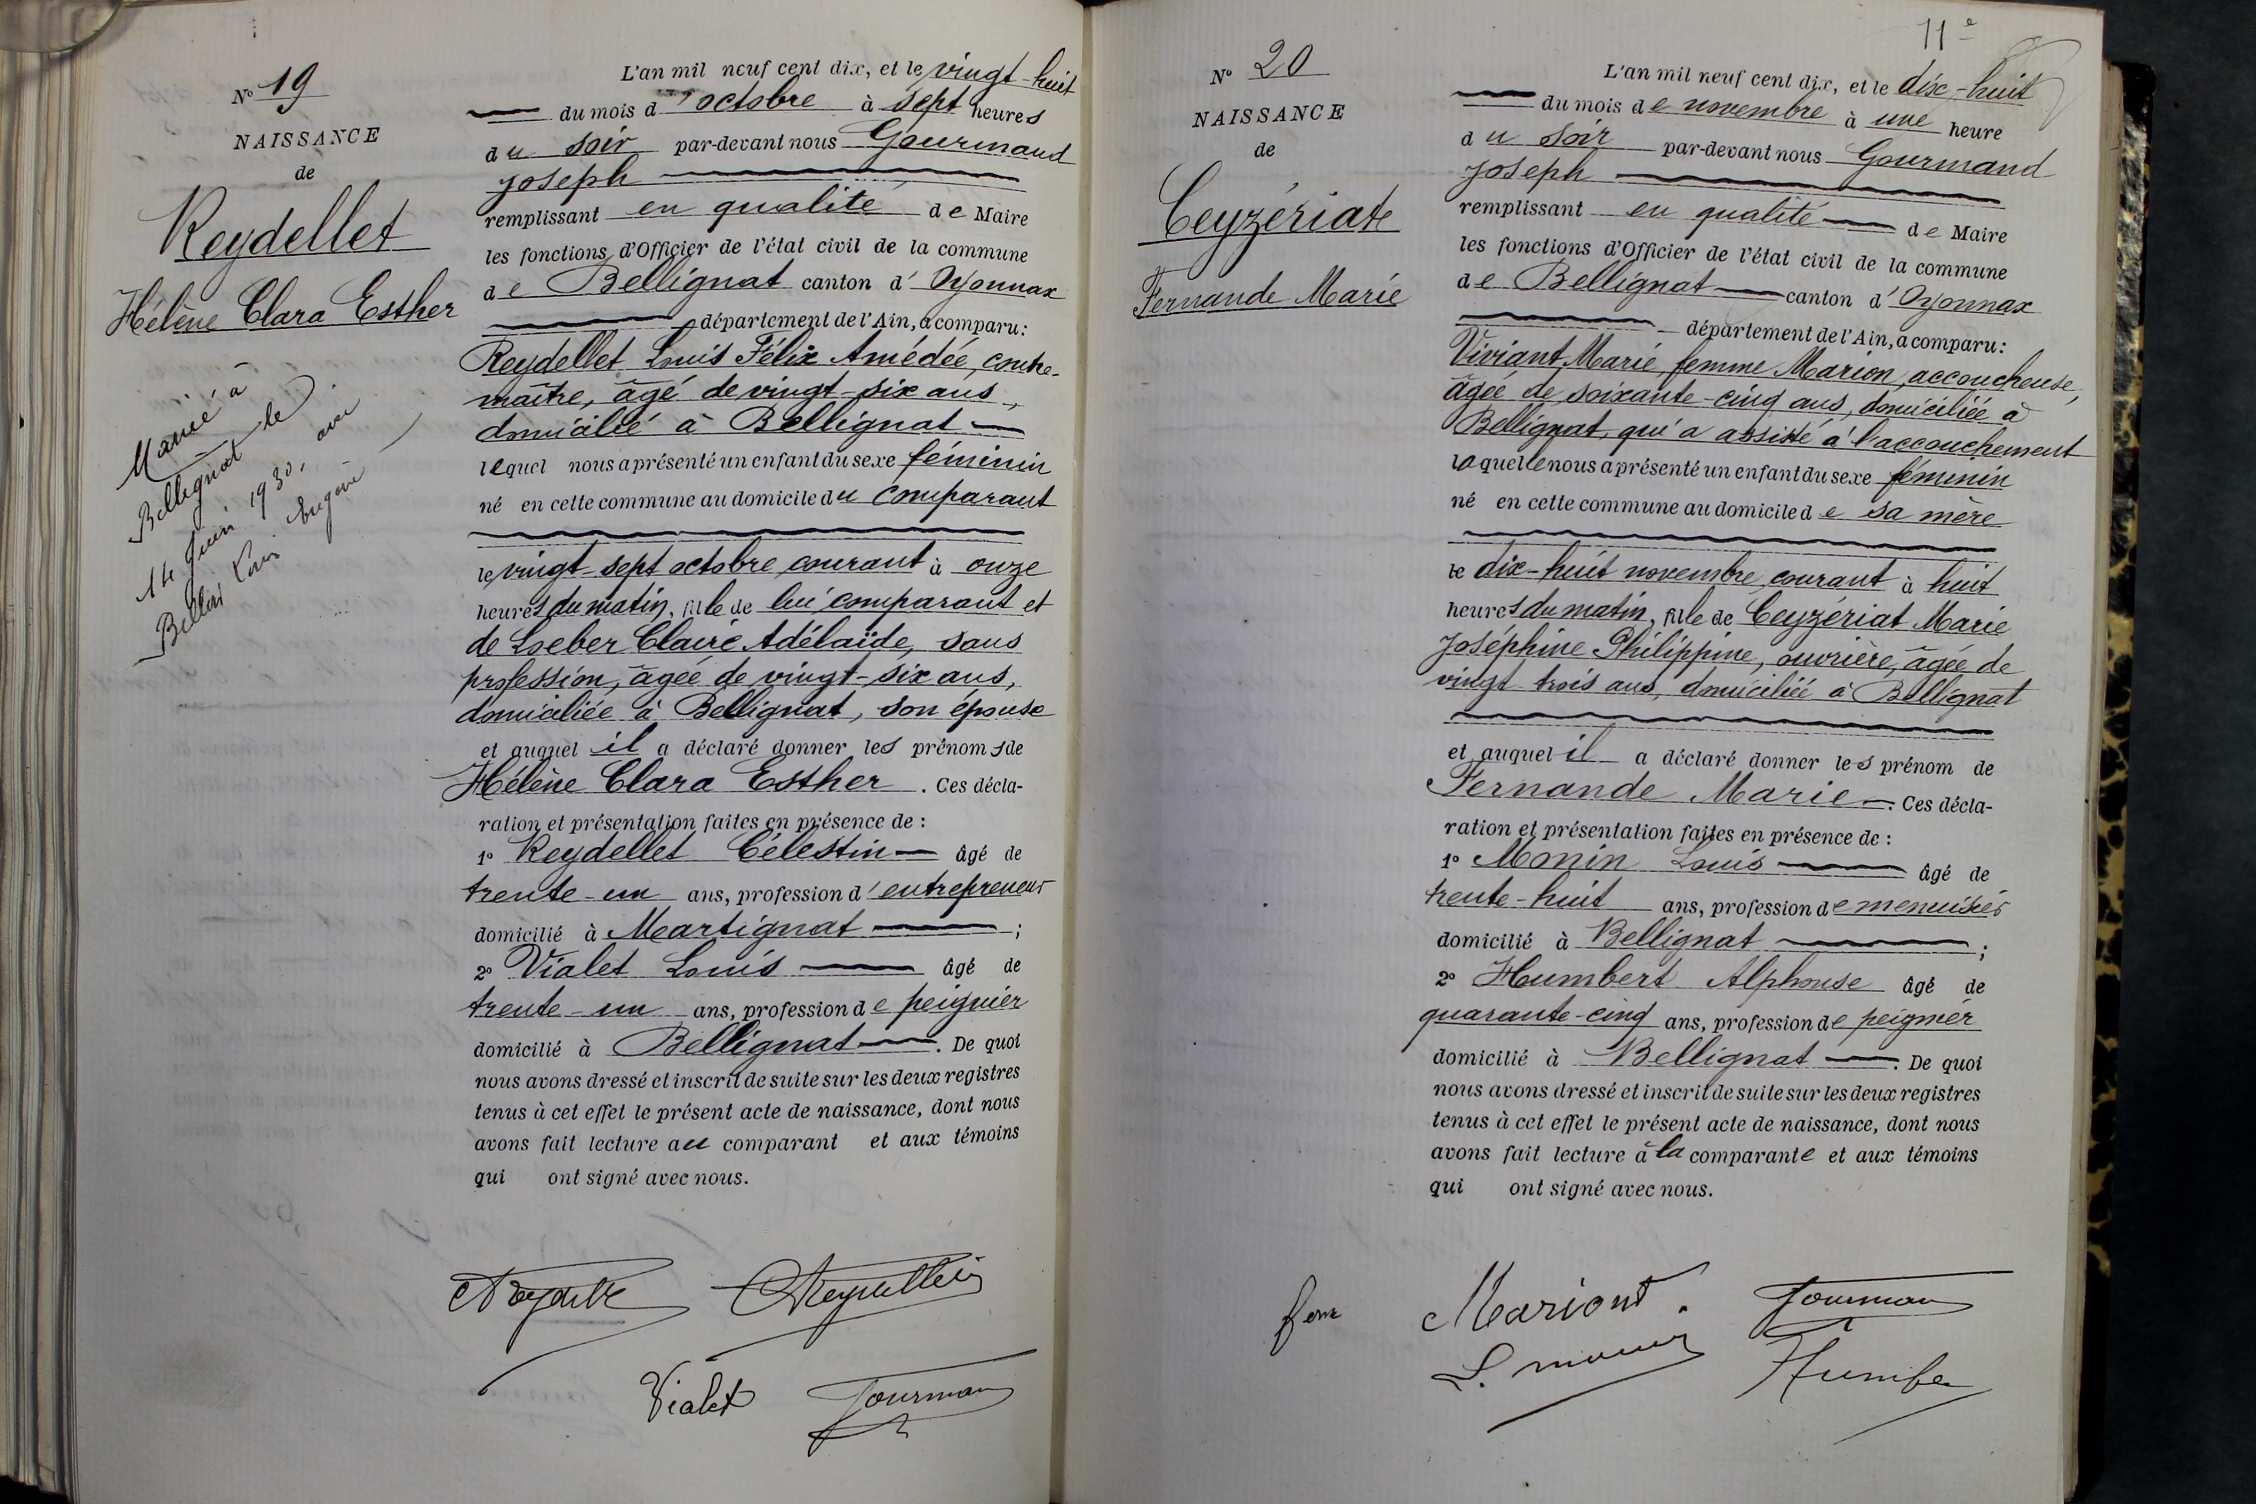 No 19
NAISSANCE
de
Reydellet
Hélène Clara Esther
Marié à
Bellignat le
14 Juin 1930,
avec
Louis Eugène
L'an mil neuf cent dix, et le vingt-huit
du mois d'octobre à sept heures
du soir par-devant nous Gourmand
Joseph
remplissant en qualité de Maire
les fonctions d'Officier de l'état civil de la commune
de Bellignat canton d'Oyonnax
département de l'Ain, a comparu:
Reydellet Louis Félix Amédée, contre-
maître, âgé de vingt-six ans,
domicilié à Bellignat
lequel nous a présenté un enfant du sexe féminin
né en cette commune au domicile du comparant
le vingt-sept octobre courant à onze
heures du matin, fille de lui comparant et
de Loeber Claire Adélaïde, sans
profession, âgée de vingt-six ans,
domiciliée à Bellignat, son épouse
et auquel il a déclaré donner les prénoms de
Hélène Clara Esther. Ces décla-
ration et présentation faites en présence de :
1º Reydellet Célestin âgé de
trente-un ans, profession d'entrepreneur
domicilié à Martignat ;
2º Vialet Louis âgé de
trente-un ans, profession de peignier
domicilié à Bellignat. De quoi
nous avons dressé et inscrit de suite sur les deux registres
tenus à cet effet le présent acte de naissance, dont nous
avons fait lecture au comparant et aux témoins
qui ont signé avec nous.
Vialet Gourman
11e
No 20
NAISSANCE
de
Ceyzériate
Fernande Marie
L'an mil neuf cent dix, et le dix-huit
du mois de novembre à une heure
du soir par-devant nous Gourmand
Joseph
remplissant en qualité de Maire
les fonctions d'Officier de l'état civil de la commune
de Bellignat canton d'Oyonnax
département de l'Ain, a comparu:
Viviant Marie femme Marion, accoucheuse,
âgée de soixante-cinq ans, domiciliée à
Bellignat, qui a assisté à l'accouchement
laquelle nous a présenté un enfant du sexe féminin
né en cette commune au domicile de sa mère
le dix-huit novembre courant à huit
heures du matin, fille de Ceyzériat Marie
Joséphine Philippine, ouvrière, âgée de
vingt trois ans, domiciliée à Bellignat
et auquel il a déclaré donner les prénom de
Fernande Marie. Ces décla-
ration et présentation faites en présence de :
1º Monin Louis âgé de
trente-huit ans, profession de menuisier
domicilié à Bellignat ;
2º Humbert Alphonse âgé de
quarante-cinq ans, profession de peignier
domicilié à Bellignat. De quoi
nous avons dressé et inscrit de suite sur les deux registres
tenus à cet effet le présent acte de naissance, dont nous
avons fait lecture à la comparante et aux témoins
qui ont signé avec nous.
Mariont. Gourman
L. Monin